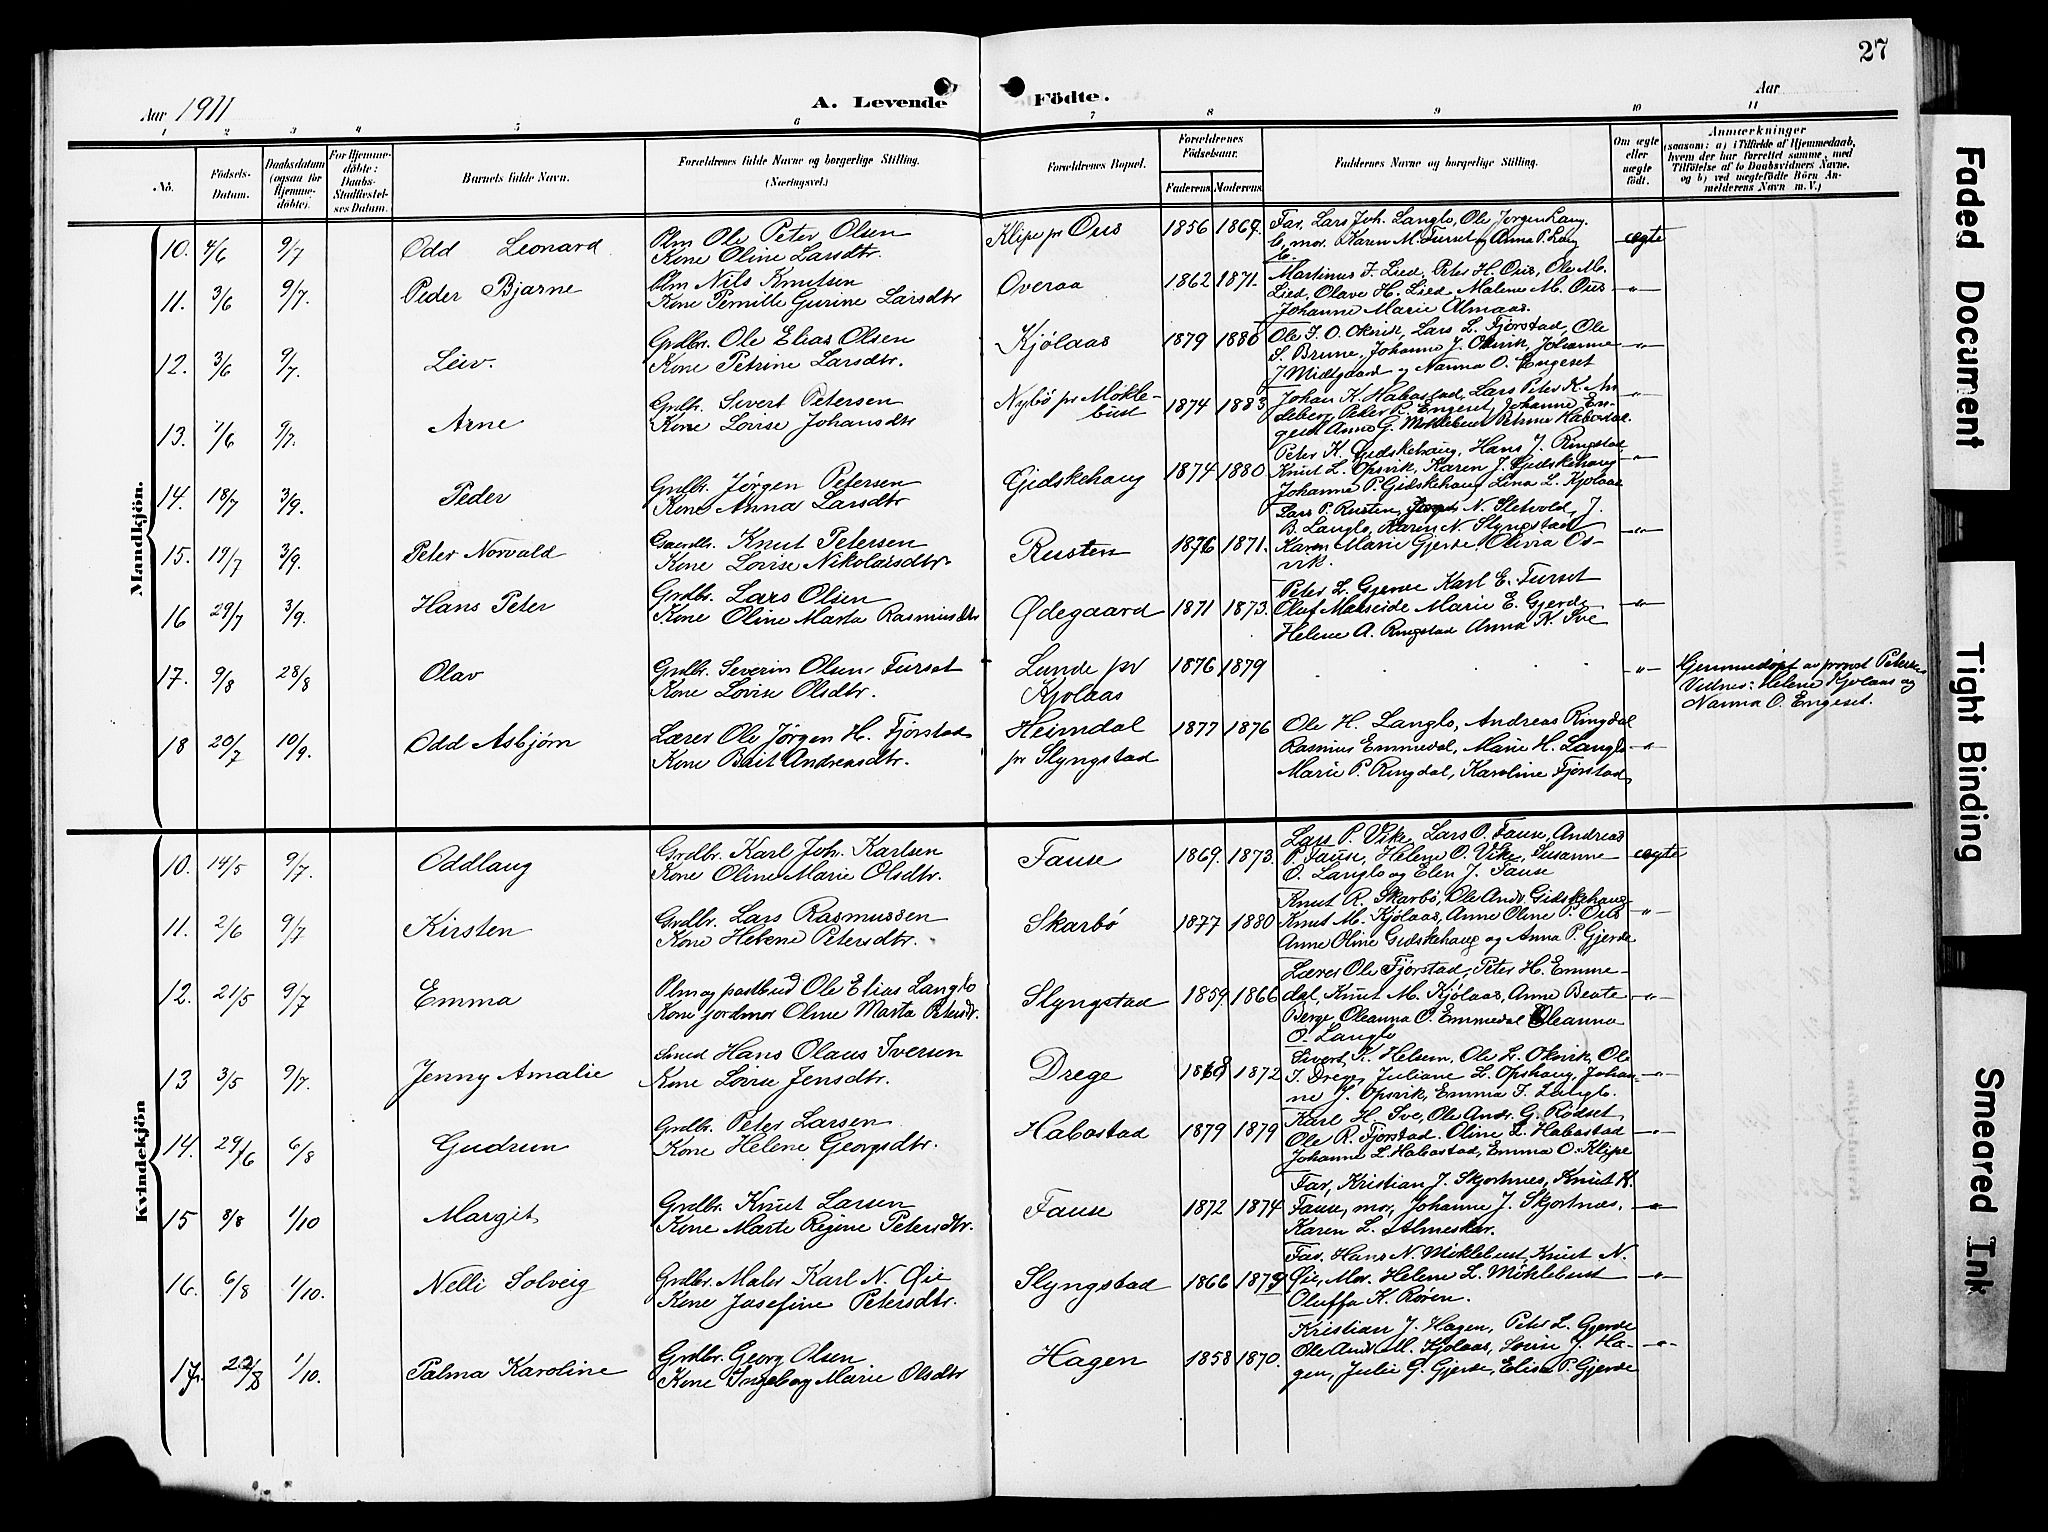 27
Aar 1911
A. Levende Födte.
Aar
1 2 3 4 5 6 7 8 9 10 11
Nö.
Födsels-Datum.
Daabsdatum (ogsaa för Hjemmedöbte).
For Hjemmedöbte: Daabs-Stadfæstelses Datum.
Barnets fulde Navn.
Forældrenes fulde Navne og borgerlige Stilling.
(Næringsvei.)
Forældrenes Bopæl.
Forældrenes Födselsaar.
Faderens Moderens
Faddernes Navne og borgerlige Stilling.
Om ægte eller uægte födt.
Anmærkninger
(saasom: a) i Tilfælde af Hjemmedaab, hvem der har forrettet samme, med Tilföielse af to Daabsvidners Navne. og b) ved uægtefödte Börn Anmelderens Navn m. V.)
Mandkjön.
10. 4/6 9/7 Odd Leonard
Plm Ole Peter Olsen
Kone Oline Larsdtr.
Klipe pr Ous 1856 1869.
Far, Lars Joh. Langlo, Ole Jørgen Lang-
lo, mor, Karen M. Furset og Anna P. Lang
lo. ægte
11. 3/6 9/7. Peder Bjarne
Plm Nils Knutsen
Kone Pernille Gurine Larsdtr
Overaa 1862 1871.
Martinus J. Lied, Peter H. Ous, Ole M.
Lied, Olave H. Lied Malene M. Ous
Johanne Marie Almaas. -"-
12. 3/6 9/7. Leiv.
Grdbr. Ole Elias Olsen
Kone Petrine Larsdtr.
Kjölaas 1879 1886
Ole J. O. Oksvik, Lars L. Fjörstad, Ole
S. Brune, Johanne J. Oksvik, Johanne
J Midtgaard og Nanna O. Engeset -"-
13. 1/6 9/7. Arne
Grdbr. Sivert Petersen
Kone Lovise Johansdtr
Nybö pr Mökle-
bust 1874 1883
Johan K. Habostad, Lars Peter K. An
deberg, Peter R. Engeset, Johanne En-
geset Anne G. Möklebust Petrine Habostad. -"-
14. 18/7 3/9. Peder
Grdbr. Jørgen Petersen
Kone Anna Larsdtr
Gidskehaug 1874 1880
Peter K. Gidskehaug, Hans J. Ringstad,
Knut L. Opsvik, Karen J. Gidskehaug
Johanne P. Gidskehaug Lina L. Kjölaas -"-
15. 19/7 3/9. Peter Norvald
Gaardbr. Knut Petersen
Kone Lovise Nikolaisdtr
Rusten 1876 1871.
Lars P. Rusten, N. Sletvold, J.
B. Langlo, Karen N. Slyngstad
Karen Marie Gjerde, Olivia Os-
vik. -"-
16 29/7 3/9. Hans Peter
Grdbr. Lars Olsen
Kone Oline Marta Rasmusdtr
Ødegaard 1871 1873.
Peter L. Gjerde Karl E. Furset
Olaf Malseide Marie E. Gjerde
Helene A. Ringstad Anna K. Sve -"-
17. 9/8 28/8 Olav
Grdbr. Severin Olsen Furset
Kone Lovise Olsdtr.
Lunde pr
Kjolaas 1876 1879 -"-
Hjemmedöpt av provst Petersen
Vidner: Helene Kjolaas og
Nanna O. Engeset.
18 20/7 10/9. Odd Asbjørn
Lærer Ole Jørgen H. Fjörstad
Kone Brit Andreasdtr.
Heimdal
pr Slyngstad 1877 1876
Ole H. Langlo, Andreas Ringdal
Rasmus Emmedal, Marie H. Langlo
Marie P. Ringdal, Karoline Fjörstad, -"-
Kvindekjön
10. 14/5 9/7. Oddlaug
Grdbr. Karl Joh. Karlsen
Kone Oline Marie Olsdtr.
Fause 1869. 1873.
Lars P. Vike, Lars O. Fause, Andreas
P. Fause, Helene O. Vike, Susanne
O. Langlo og Elen J. Fause ægte
11. 2/6 9/7 Kirsten
Grdbr. Lars Rasmussen
Kone Helene Petersdtr.
Skarbö 1877 1880
Knut R. Skarbö, Ole Andr. Gidskehaug
Knut M. Kjölaas, Anne Oline P. Ous
Anne Oline Gidskehaug og Anna P. Gjerde -"-
12. 21/5 9/7 Emma
Plm og postbud Ole Elias Langlo
Kone jordmor Oline Marta Petersdtr.
Slyngstad 1859. 1866
Lærer Ole Fjörstad, Peter H. Emme-
dal, Knut M. Kjölaas, Anne Beate
Berge, Oleanna O. Emmedal Oleanna
O. Langlo -"-
13 3/5 9/7. Jenny Amalie
Smed Hans Olaus Iversen
Kone Lovise Jensdtr.
Drege 1868 1872
Sivert K. Helsem, Ole L. Oksvik, Ole
I. Drege, Juliane L. Opshaug, Johan-
ne J. Opsvik, Emma J. Langlo. -"-
14. 29/6 6/8 Gudrun
Grdbr. Peter Larsen
Kone Helene Georgsdtr.
Habostad 1879 1879
Karl H. Sve, Ole Andr. G. Rödset,
Ole R. Fjörstad. Oline L. Habostad
Johanne L. Habostad, Emma O. Klipe -"-
15 8/8 1/10 Margit
Grdbr. Knut Larsen
Kone Marte Regine Petersdtr.
Fause 1872 1874
Far, Kristian J. Skjortnes, Knut K.
Fause, mor, Johanne J. Skjortnes,
Karen L. Almeskar. -"-
16. 6/8 1/10. Nelli Solveig
Grdbr. Maler Karl N. Øie
Kone Josefine Petersdtr.
Slyngstad 1866 1879
Far. Hans N. Möklebust, Knut N.
Øie, Mor. Helene L. Möklebust
Oluffa K. Rören. -"-
17. 22/8 1/10. Palma Karoline
Grdbr. Georg Olsen
Kone Ingeborg Marie Olsdtr
Hagen 1858 1870.
Kristian J. Hagen, Peter L. Gjerde
Ole Andr M. Kjölaas, Lovise J. Ha-
gen, Julie G. Gjerde, Elisa P. Gjerde -"-
Faded Document
Tight Binding
Smeared Ink